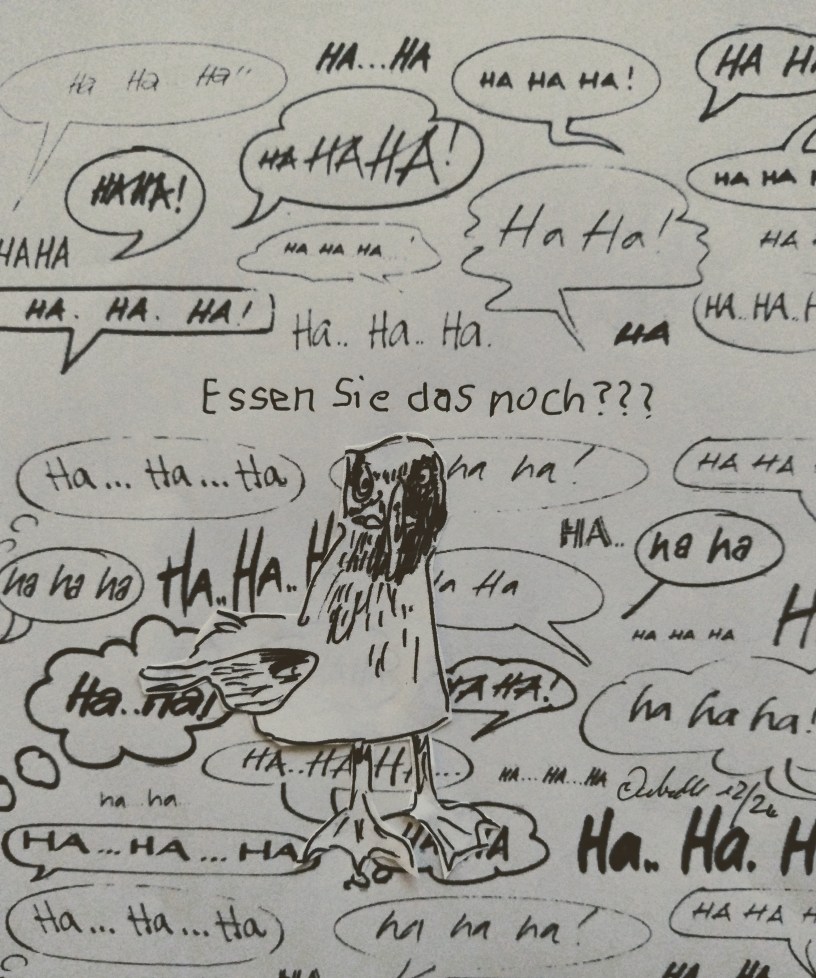 Ha Ha Ha"
HA...HA
HA HA HA!
HA HA
HA HAHA!
HAHA!
HA HA
HAHA
HA HA HA...!
Ha Ha!
HA
HA. HA. HA!
Ha.. Ha.. Ha.
HA
HA..HA..H
Essen Sie das noch???
Ha... Ha...Ha
ha ha!
HA HA
HA..
ha ha
ha ha ha
HA..HA..H
Ha
HA HA HA
H
Ha..Ha!
HA!
ha ha ha!
HA..HA
HA...HA...HA
12/24
ha ha
HA...HA...HA
HA
Ha.. Ha. H
Ha... Ha...Ha
ha ha ha!
HA HA